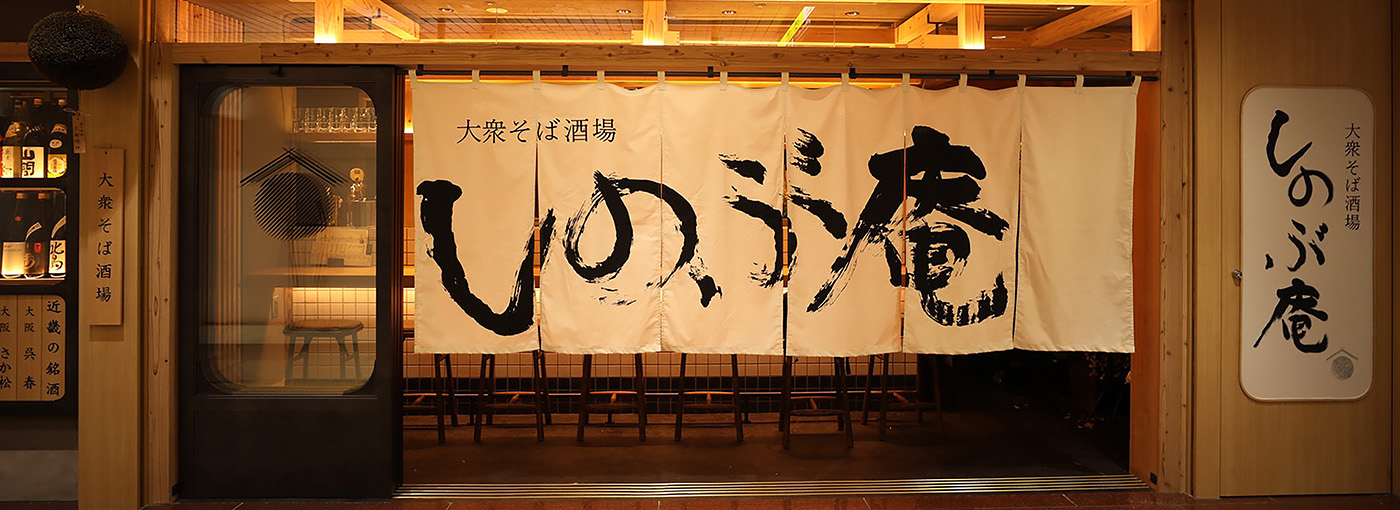 大衆そば酒場
近畿の銘酒
大阪 呉春
大阪 さか松
大衆そば酒場
しのぶ庵
大衆そば酒場
しのぶ庵